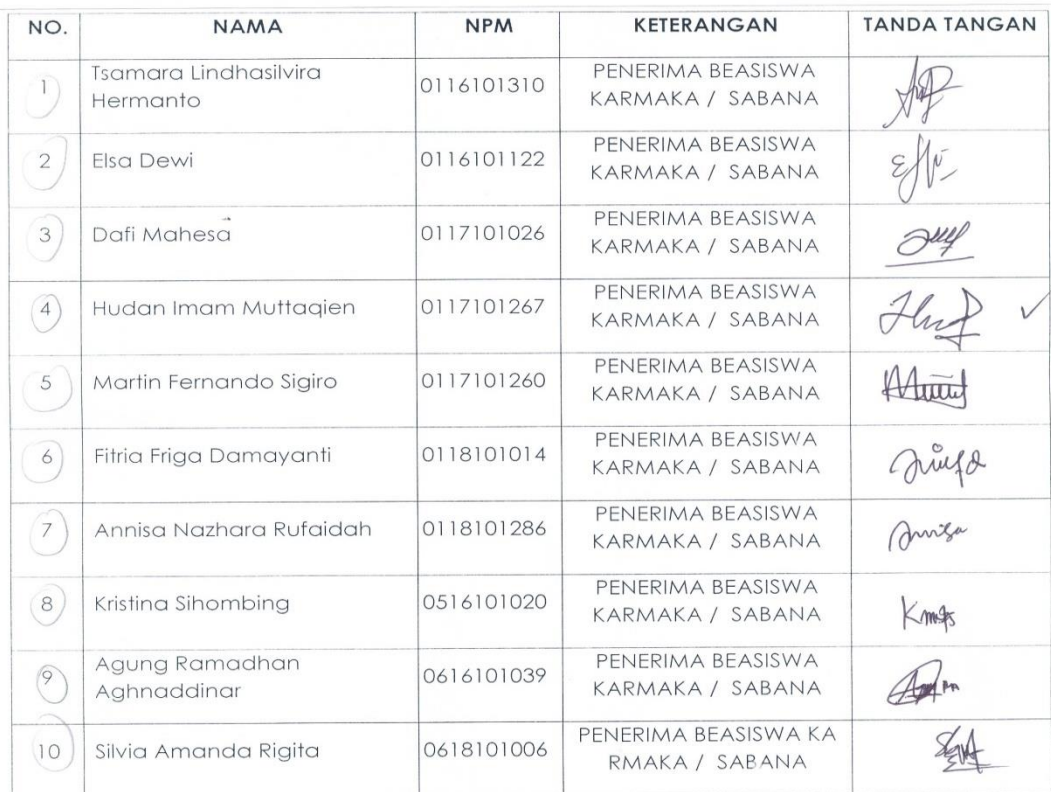 NO. NAMA NPM KETERANGAN TANDA TANGAN
1 Tsamara Lindhasilvira Hermanto 0116101310 PENERIMA BEASISWA KARMAKA / SABANA
2 Elsa Dewi 0116101122 PENERIMA BEASISWA KARMAKA / SABANA
3 Dafi Mahesa 0117101026 PENERIMA BEASISWA KARMAKA / SABANA
4 Hudan Imam Muttaqien 0117101267 PENERIMA BEASISWA KARMAKA / SABANA
5 Martin Fernando Sigiro 0117101260 PENERIMA BEASISWA KARMAKA / SABANA
6 Fitria Friga Damayanti 0118101014 PENERIMA BEASISWA KARMAKA / SABANA
7 Annisa Nazhara Rufaidah 0118101286 PENERIMA BEASISWA KARMAKA / SABANA
8 Kristina Sihombing 0516101020 PENERIMA BEASISWA KARMAKA / SABANA
9 Agung Ramadhan Aghnaddinar 0616101039 PENERIMA BEASISWA KARMAKA / SABANA
10 Silvia Amanda Rigita 0618101006 PENERIMA BEASISWA KA RMAKA / SABANA